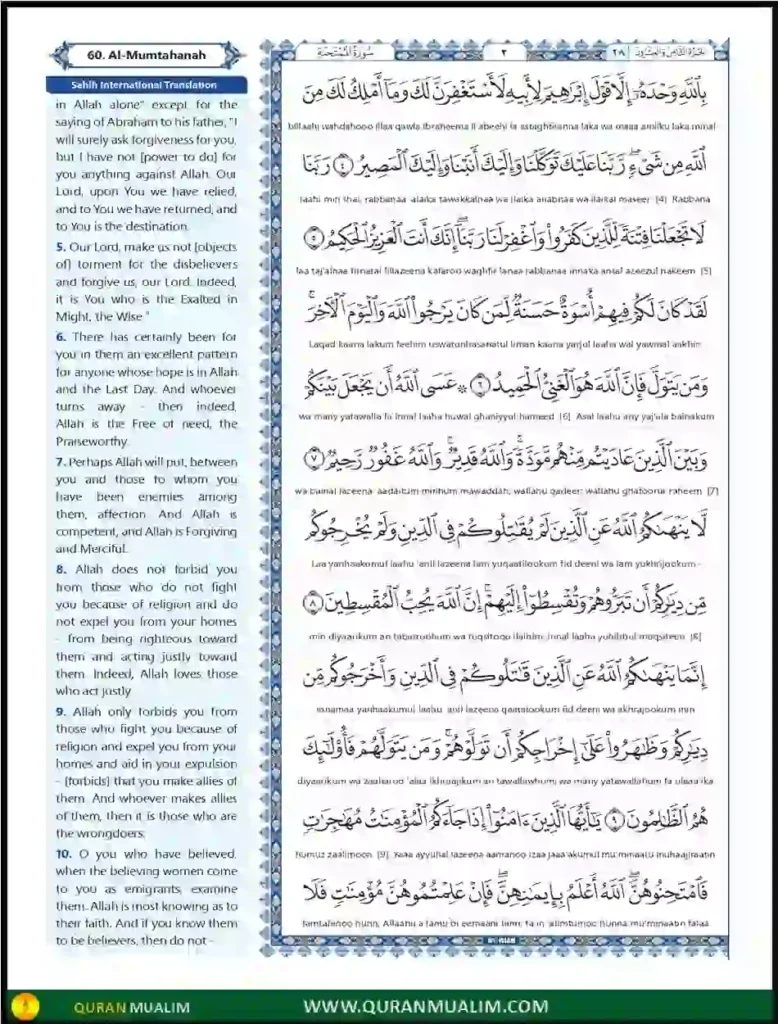 60. Al-Mumtahanah
Sahih International Translation
in Allah alone" except for the
saying of Abraham to his father, "I
will surely ask forgiveness for you,
but I have not [power to do] for
you anything against Allah. Our
Lord, upon You we have relied,
and to You we have returned, and
to You is the destination.
5. Our Lord, make us not [objects
of] torment for the disbelievers
and forgive us, our Lord. Indeed,
it is You who is the Exalted in
Might, the Wise."
6. There has certainly been for
you in them an excellent pattern
for anyone whose hope is in Allah
and the Last Day. And whoever
turns away - then indeed,
Allah is the Free of need, the
Praiseworthy.
7. Perhaps Allah will put, between
you and those to whom you
have been enemies among
them, affection. And Allah is
competent, and Allah is Forgiving
and Merciful.
8. Allah does not forbid you
from those who do not fight
you because of religion and do
not expel you from your homes
- from being righteous toward
them and acting justly toward
them. Indeed, Allah loves those
who act justly.
9. Allah only forbids you from
those who fight you because of
religion and expel you from your
homes and aid in your expulsion
- [forbids] that you make allies of
them. And whoever makes allies
of them, then it is those who are
the wrongdoers.
10. O you who have believed,
when the believing women come
to you as emigrants, examine
them. Allah is most knowing as to
their faith. And if you know them
to be believers, then do not -
سُورَةُ المُمْتَحنَة
٢
الجزء الثامن والعشرون ٢٨
بِاللَّهِ وَحْدَهُ إِلَّا قَوْلَ إِبْرَاهِيمَ لِأَبِيهِ لَأَسْتَغْفِرَنَّ لَكَ وَمَا أَمْلِكُ لَكَ مِنَ
billaahi wahdahooo illaa qawla Ibraheema li abeehi la astaghfiranna laka wa maaa amliku laka minal
اللَّهِ مِن شَيْءٍ رَّبَّنَا عَلَيْكَ تَوَكَّلْنَا وَإِلَيْكَ أَنَبْنَا وَإِلَيْكَ الْمَصِيرُ ٤ رَبَّنَا
laahi min shai; rabbanaa 'alaika tawakkalnaa wa ilaika anabnaa wa ilaikal maseer (4) Rabbana
لَا تَجْعَلْنَا فِتْنَةً لِّلَّذِينَ كَفَرُوا وَاغْفِرْ لَنَا رَبَّنَا إِنَّكَ أَنتَ الْعَزِيزُ الْحَكِيمُ ٥
laa taj'alnaa fitnatal lillazeena kafaroo waghfir lanaa rabbanaa innaka antal azeezul hakeem (5)
لَقَدْ كَانَ لَكُمْ فِيهِمْ أُسْوَةٌ حَسَنَةٌ لِّمَن كَانَ يَرْجُو اللَّهَ وَالْيَوْمَ الْآخِرَ ۚ
Laqad kaana lakum feehim uswatunhasanatul liman kaana yarjul laaha wal yawmal aakhir
وَمَن يَتَوَلَّ فَإِنَّ اللَّهَ هُوَ الْغَنِيُّ الْحَمِيدُ ٦ ۞ عَسَى اللَّهُ أَن يَجْعَلَ بَيْنَكُمْ
wa many yatawalla fa innal laaha huwal ghaniyyul hameed (6) 'Asal laahu any yaj'ala bainakum
وَبَيْنَ الَّذِينَ عَادَيْتُم مِّنْهُم مَّوَدَّةً ۚ وَاللَّهُ قَدِيرٌ ۚ وَاللَّهُ غَفُورٌ رَّحِيمٌ ٧
wa bainal lazeena 'aadaitum minhum mawaddah; wallahu qadeer; wallahu ghafoorur raheem (7)
لَّا يَنْهَاكُمُ اللَّهُ عَنِ الَّذِينَ لَمْ يُقَاتِلُوكُمْ فِي الدِّينِ وَلَمْ يُخْرِجُوكُم
Laa yanhaakumul laahu 'anil lazeena lam yuqaatilookum fid deeni wa lam yukhrijookum -
مِّن دِيَارِكُمْ أَن تَبَرُّوهُمْ وَتُقْسِطُوا إِلَيْهِمْ ۚ إِنَّ اللَّهَ يُحِبُّ الْمُقْسِطِينَ ٨
min diyaarikum an tabarroohum wa tuqsitooo ilaihim; innal laaha yuhibbul muqsiteen (8)
إِنَّمَا يَنْهَاكُمُ اللَّهُ عَنِ الَّذِينَ قَاتَلُوكُمْ فِي الدِّينِ وَأَخْرَجُوكُم مِّن
Innamaa yanhaakumul laahu 'anil lazeena qaatalookum fid deeni wa akhrajookum min
دِيَارِكُمْ وَظَاهَرُوا عَلَىٰ إِخْرَاجِكُمْ أَن تَوَلَّوْهُمْ ۚ وَمَن يَتَوَلَّهُمْ فَأُولَٰئِكَ
diyaarikum wa zaaharoo 'alaa ikhraajikum an tawallawhum; wa many yatawallahum fa ulaaa'ika
هُمُ الظَّالِمُونَ ٩ يَا أَيُّهَا الَّذِينَ آمَنُوا إِذَا جَاءَكُمُ الْمُؤْمِنَاتُ مُهَاجِرَاتٍ
humuz zaalimoon (9) Yaaa ayyuhal lazeena aamanoo izaa jaaa'akumul mu'minaatu muhaajiraatin
فَامْتَحِنُوهُنَّ ۖ اللَّهُ أَعْلَمُ بِإِيمَانِهِنَّ ۖ فَإِنْ عَلِمْتُمُوهُنَّ مُؤْمِنَاتٍ فَلَا
famtahinoo hunn; Allaahu a'lamu bi eemaani hinn; fa in 'alimtumoo hunna mu'minaatin falaa
QURAN MUALIM
WWW.QURANMUALIM.COM